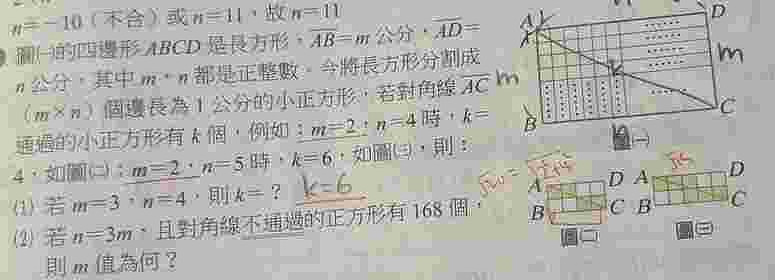 n=-10（不合）或n=11，故n=11
圖㈠的四邊形ABCD是長方形，AB=m公分，AD=
n公分，其中m、n都是正整數。今將長方形分割成
（m×n）個邊長為1公分的小正方形，若對角線AC
通過的小正方形有k個，例如：m=2，n=4時，k=
4，如圖㈡；m=2，n=5時，k=6，如圖㈢，則：
⑴ 若m=3，n=4，則k=？ k=6
⑵ 若n=3m，且對角線不通過的正方形有168個，
則m值為何？
A
D
m
m
B
C
圖㈠
A
D
B
C
圖㈡
A
D
B
C
圖㈢